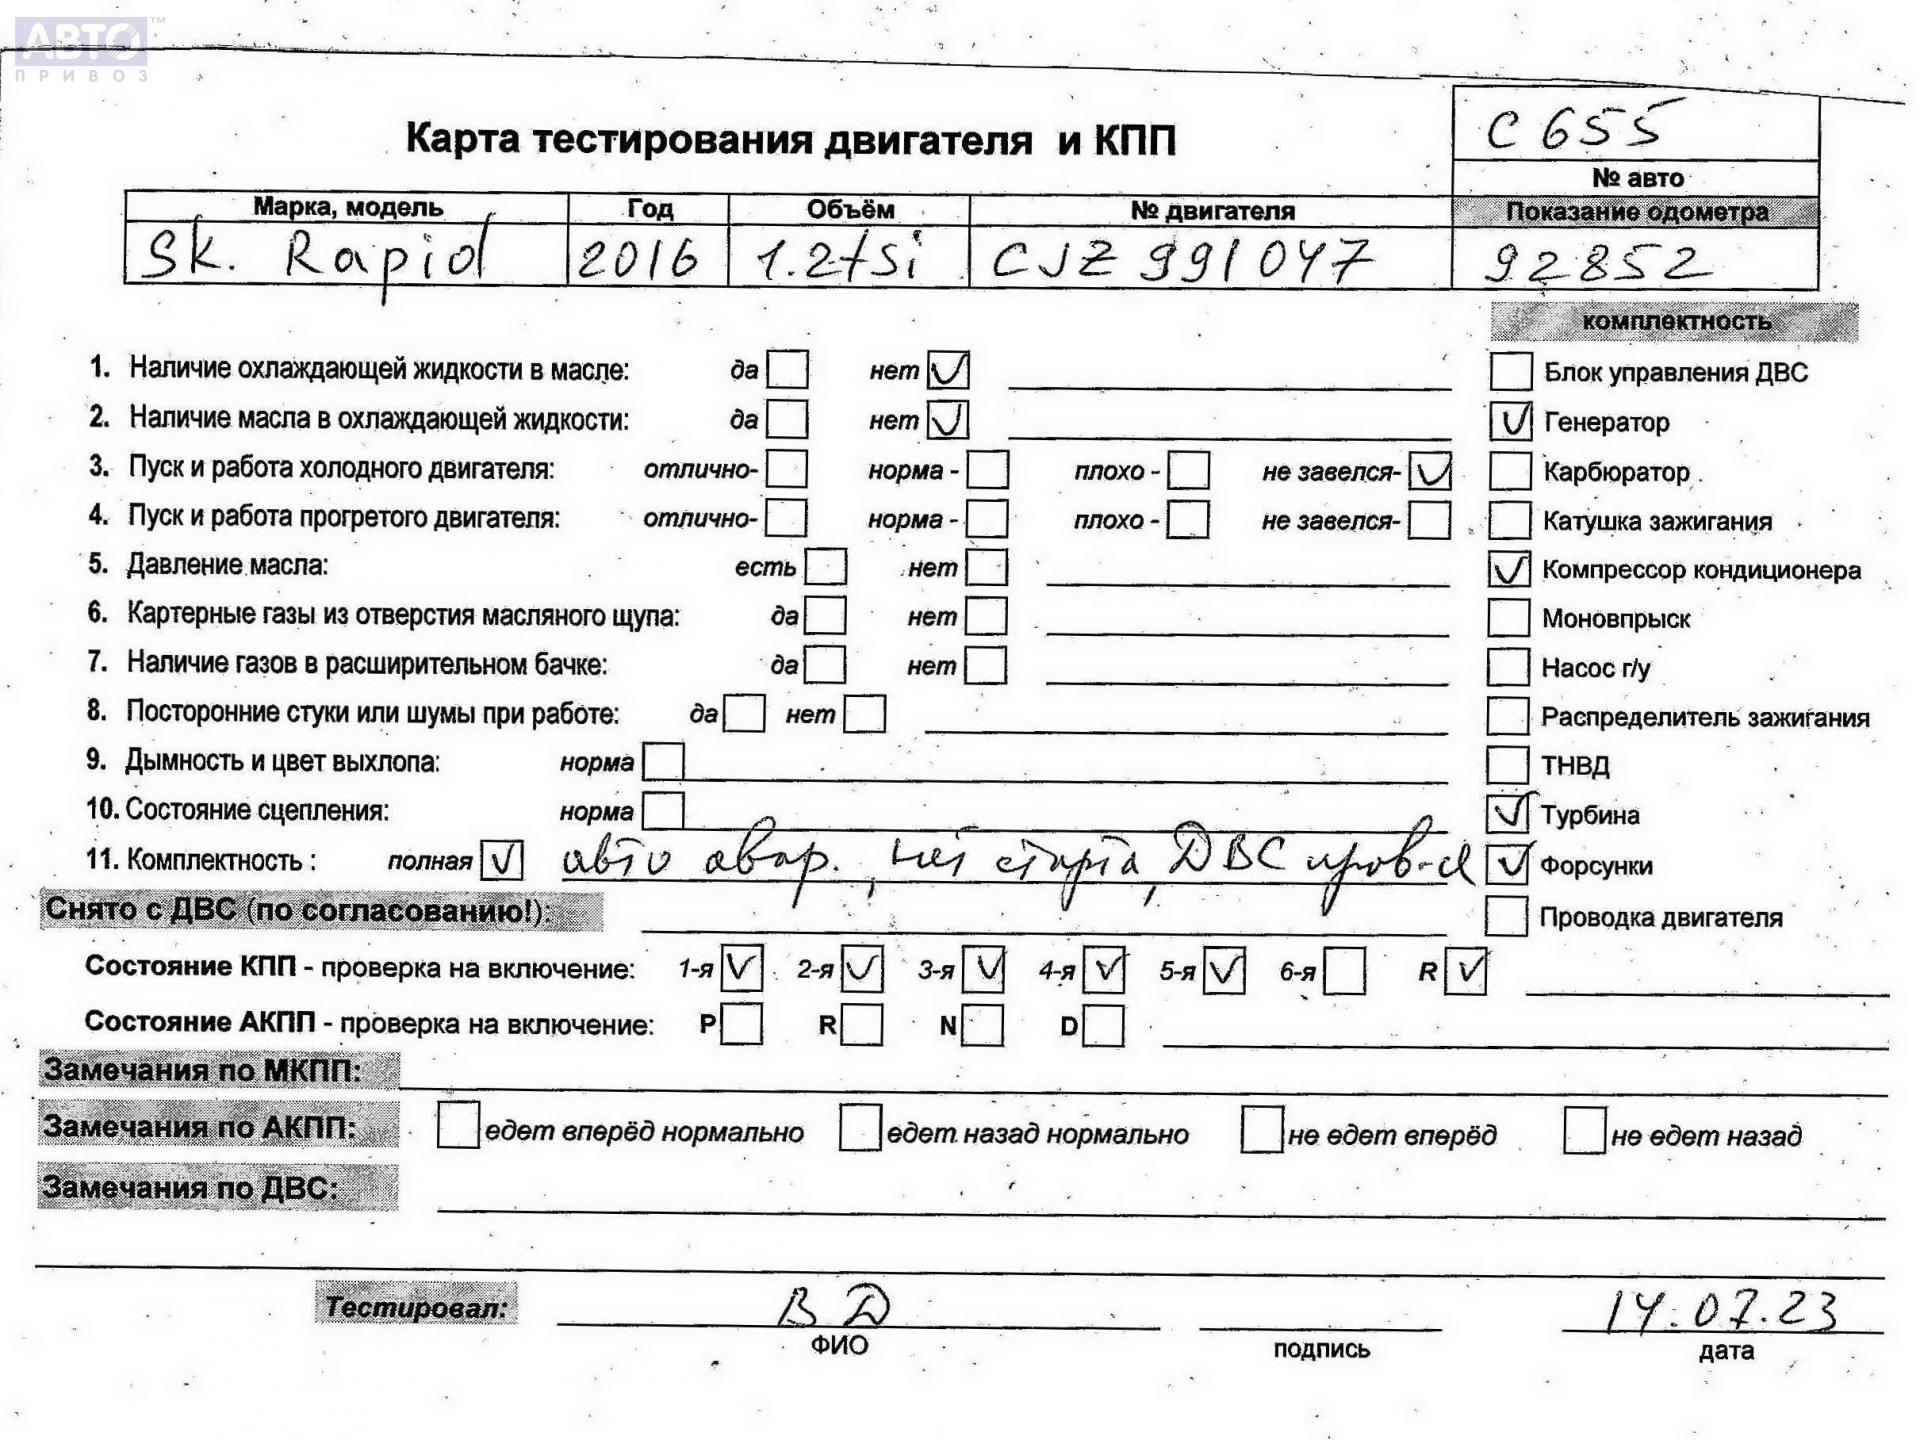 АВТО™
ПРИВОЗ
С 655
Карта тестирования двигателя и КПП
№ авто
Марка, модель Год Объём № двигателя Показание одометра
Sk. Rapid 2016 1.2 tsi CJZ 991047 92852
комплектность
1. Наличие охлаждающей жидкости в масле: да нет Блок управления ДВС
2. Наличие масла в охлаждающей жидкости: да нет Генератор
3. Пуск и работа холодного двигателя: отлично- норма - плохо - не завелся- Карбюратор
4. Пуск и работа прогретого двигателя: отлично- норма - плохо - не завелся- Катушка зажигания
5. Давление масла: есть нет Компрессор кондиционера
6. Картерные газы из отверстия масляного щупа: да нет Моновпрыск
7. Наличие газов в расширительном бачке: да нет Насос г/у
8. Посторонние стуки или шумы при работе: да нет Распределитель зажигания
9. Дымность и цвет выхлопа: норма ТНВД
10. Состояние сцепления: норма Турбина
11. Комплектность : полная авто авар., нет старта, ДВС пров-ся Форсунки
Снято с ДВС (по согласованию!): Проводка двигателя
Состояние КПП - проверка на включение: 1-я 2-я 3-я 4-я 5-я 6-я R
Состояние АКПП - проверка на включение: P R N D
Замечания по МКПП:
Замечания по АКПП: едет вперёд нормально едет назад нормально не едет вперёд не едет назад
Замечания по ДВС:
Тестировал: ВД 14.07.23
ФИО подпись дата